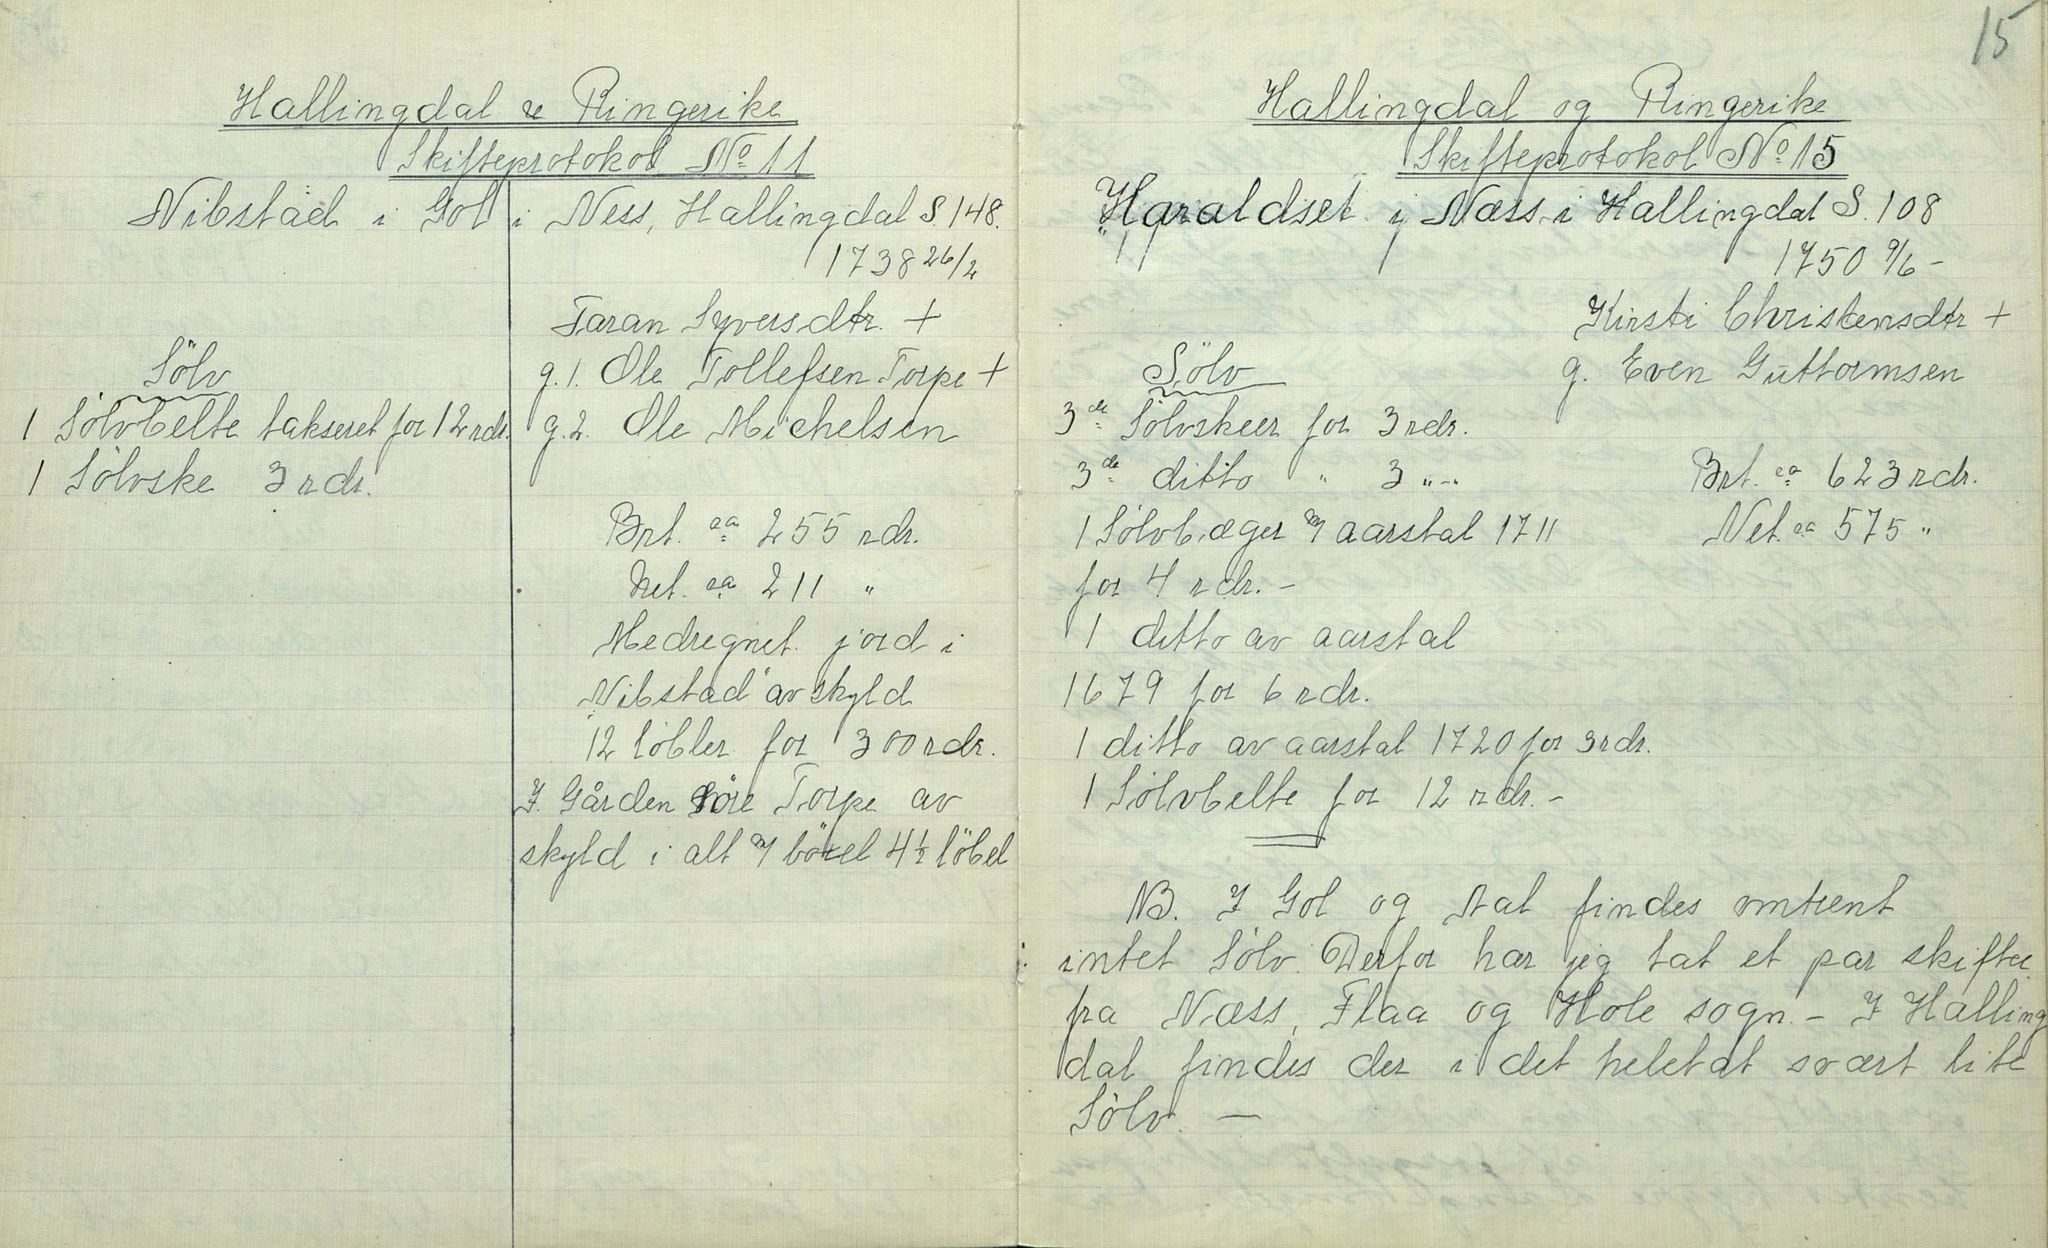 Hallingdal & Ringerike
Skifteprotokol No 11
Nibstad i Gol i Ness, Hallingdal S. 148.
1738 26/2
Sölv
1 Sölvbelte takseret for 12 rdr.
1 Sölvske 3 rdr.
Taran Syversdtr. +
g. 1. Ole Tollefsen Torpe +
g. 2. Ole Michelsen
Brt. ca 255 rdr.
Net. ca 211 "
Medregnet jord i
"Nibstad" av skyld
12 löbler for 300 rdr.
I Gården Töre Torpe av
skyld i alt börel 4½ löbel
15
Hallingdal og Ringerike
Skifteprotokol No 15
"Haraldset" i Næss i Hallingdal S. 108
1750 9/6 -
Kirsti Christensdtr +
g. Even Guttormsen
Sölv
3 de Sölvskeer for 3 rdr.
3 de ditto " 3 "-"
1 Sölvbæger m/ aarstal 1711
for 4 rdr. -
1 ditto av aarstal
1679 for 6 rdr.
1 ditto av aarstal 1720 for 3 rdr.
1 Sölvbelte for 12 rdr. -
Brt. ca 623 rdr.
Net. ca 575 "
NB. I Gol og Aal findes omtrent
intet Sölv. Derfor har jeg tat et par skifter
fra Næss, Flaa og Hole sogn. - I Halling
dal findes der i det heletat svært lite
Sölv. -